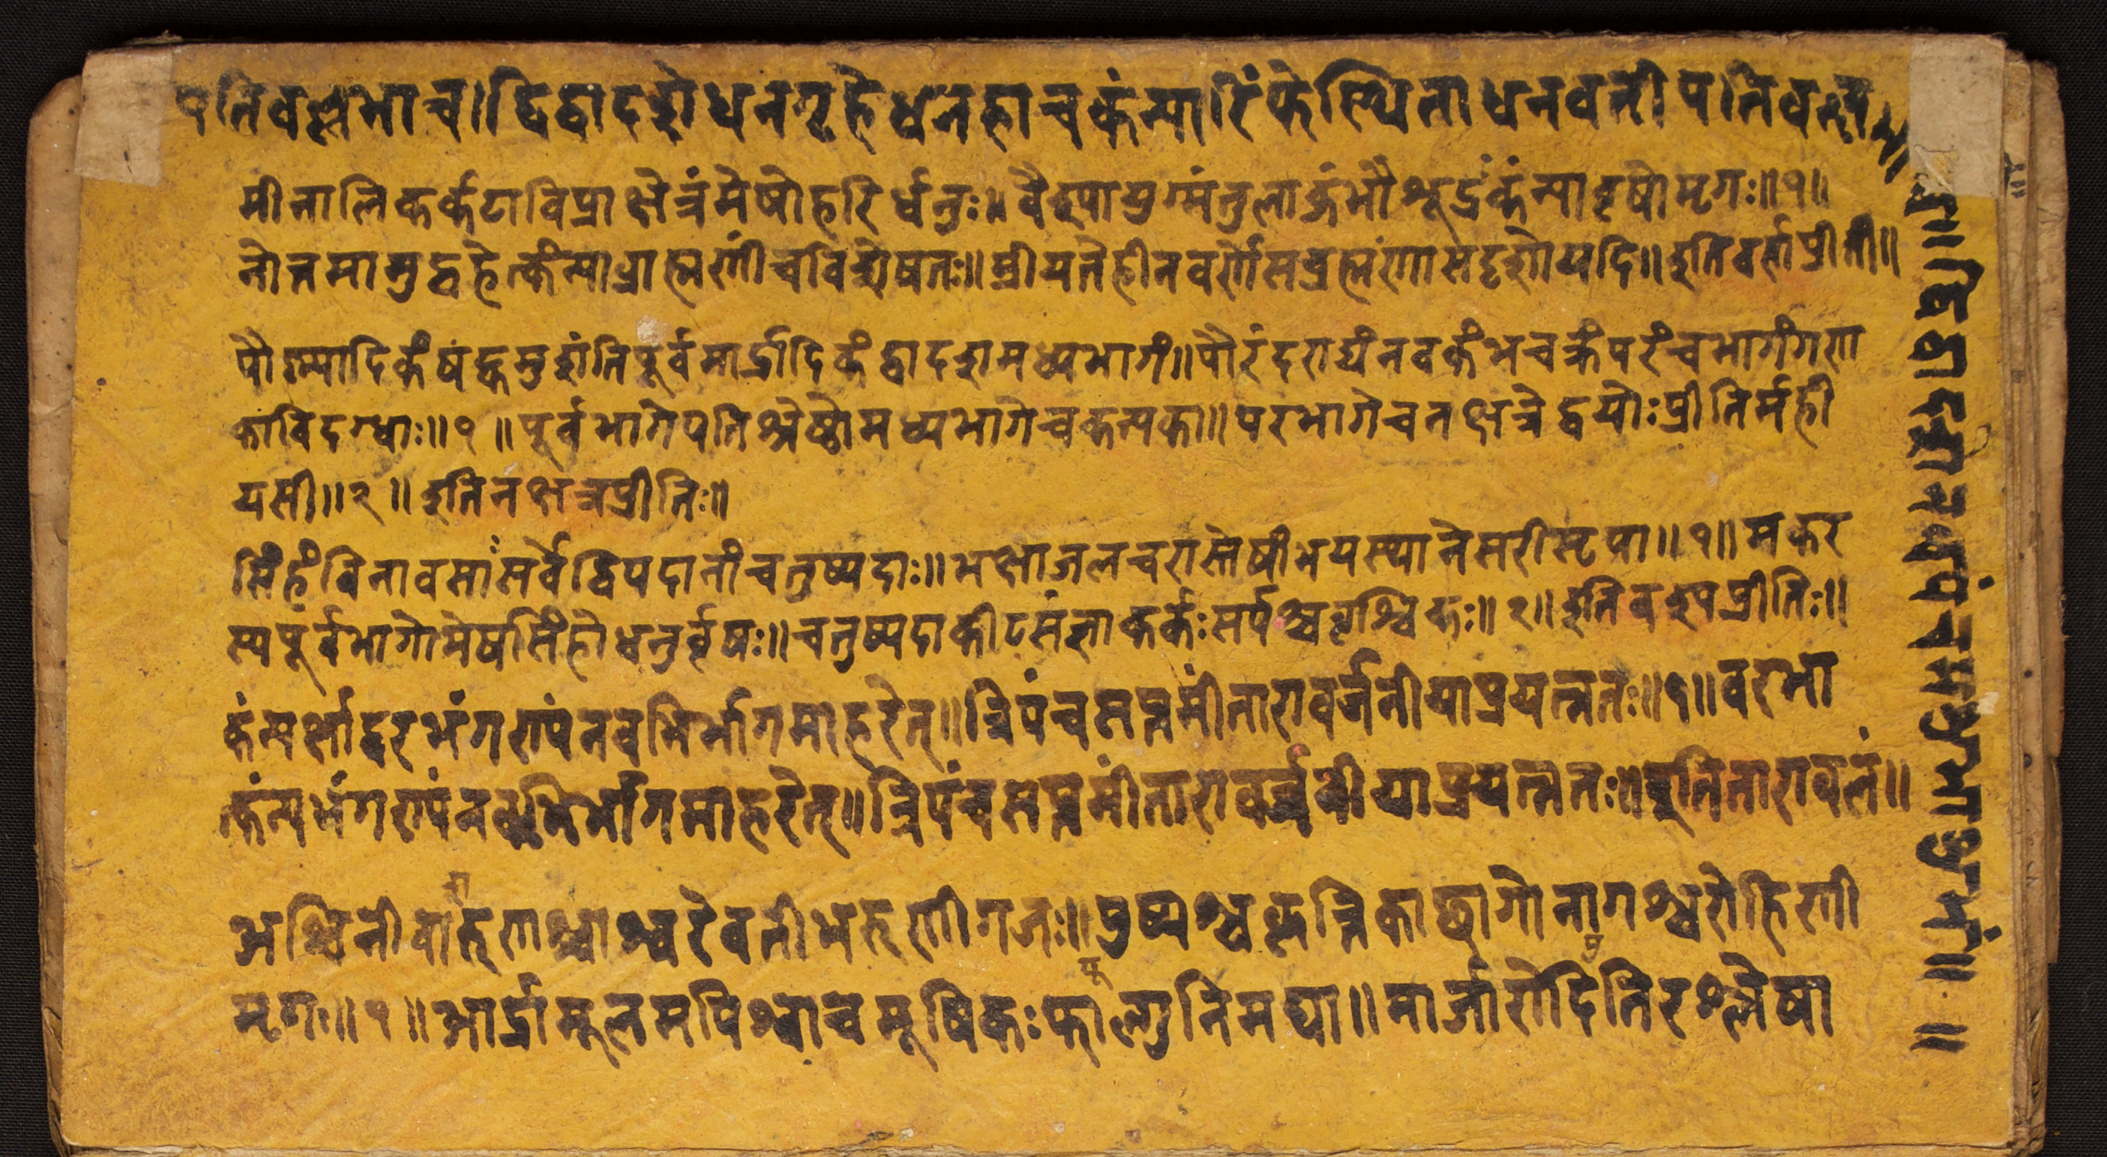 पतिवल्लभा च। द्विद्वादशे धनगृहे धनहा च कंन्या। रिंफे स्थिता धनवती पतिवल्लभा॥
मीनालिकर्कटा विप्रा क्षेत्रं मेषो हरिर्धनुः॥ वैश्या युग्मं तुला कुंभौ शूद्रं कंन्या वृषो मृगः॥ १॥
नोत्तमामुद्वहेत्कंन्या ब्राह्मणीं च विशेषतः॥ म्रीयते हीनवर्णोस ब्रह्मंणा सदृशो यदि॥ इति वर्णप्रीती॥
पौष्ण्यादिकं षंट्कमुशंति पूर्वमार्द्रादिकं द्वादशमध्यभागं॥ पौरंदराद्यं नवकं भचक्रं परं च भागं गणा
का विदग्धाः॥ १॥ पूर्वभागे पति श्रेष्ठो मध्यभागे च कन्यका॥ परभागे च नक्षत्रे द्वयोः प्रीतिर्मही
यसी॥ २॥ इति नक्षत्रप्रीतिः॥
सिंहं विना वसा सर्वे द्विपदानां चतुष्पदाः॥ भक्षा जलचरास्तेषां भयस्थाने सरीसृपा॥ १॥ मकर
स्य पूर्वभागो मेषसिंहौ धनुर्वृषः॥ चतुष्पदा कीटसंज्ञा कर्कः सर्पश्च वृश्चिकः॥ २॥ इति वश्यप्रीतिः॥
कंन्यर्क्षाद्वरभं गण्यं नवभिर्भागमाहरेत्॥ त्रिपंचसप्तमी तारा वर्जनीया प्रयत्नतः॥ १॥ वरभा
कंन्यभं गण्यं नवभिर्भागमाहरेत्॥ त्रिपंचसप्तमी तारा वर्जनीया प्रयत्नतः॥ इति ताराबलं॥
अश्विनी वारुणाश्चाश्व रेवती भरणी गजः॥ पुष्यश्च कृत्तिका छागो नागश्च रोहिणी
मृगः॥ १॥ आर्द्रा मूलमपि श्वा च मूषिकः फाल्गुनि मघा॥ मार्जारोदितिरश्लेषा